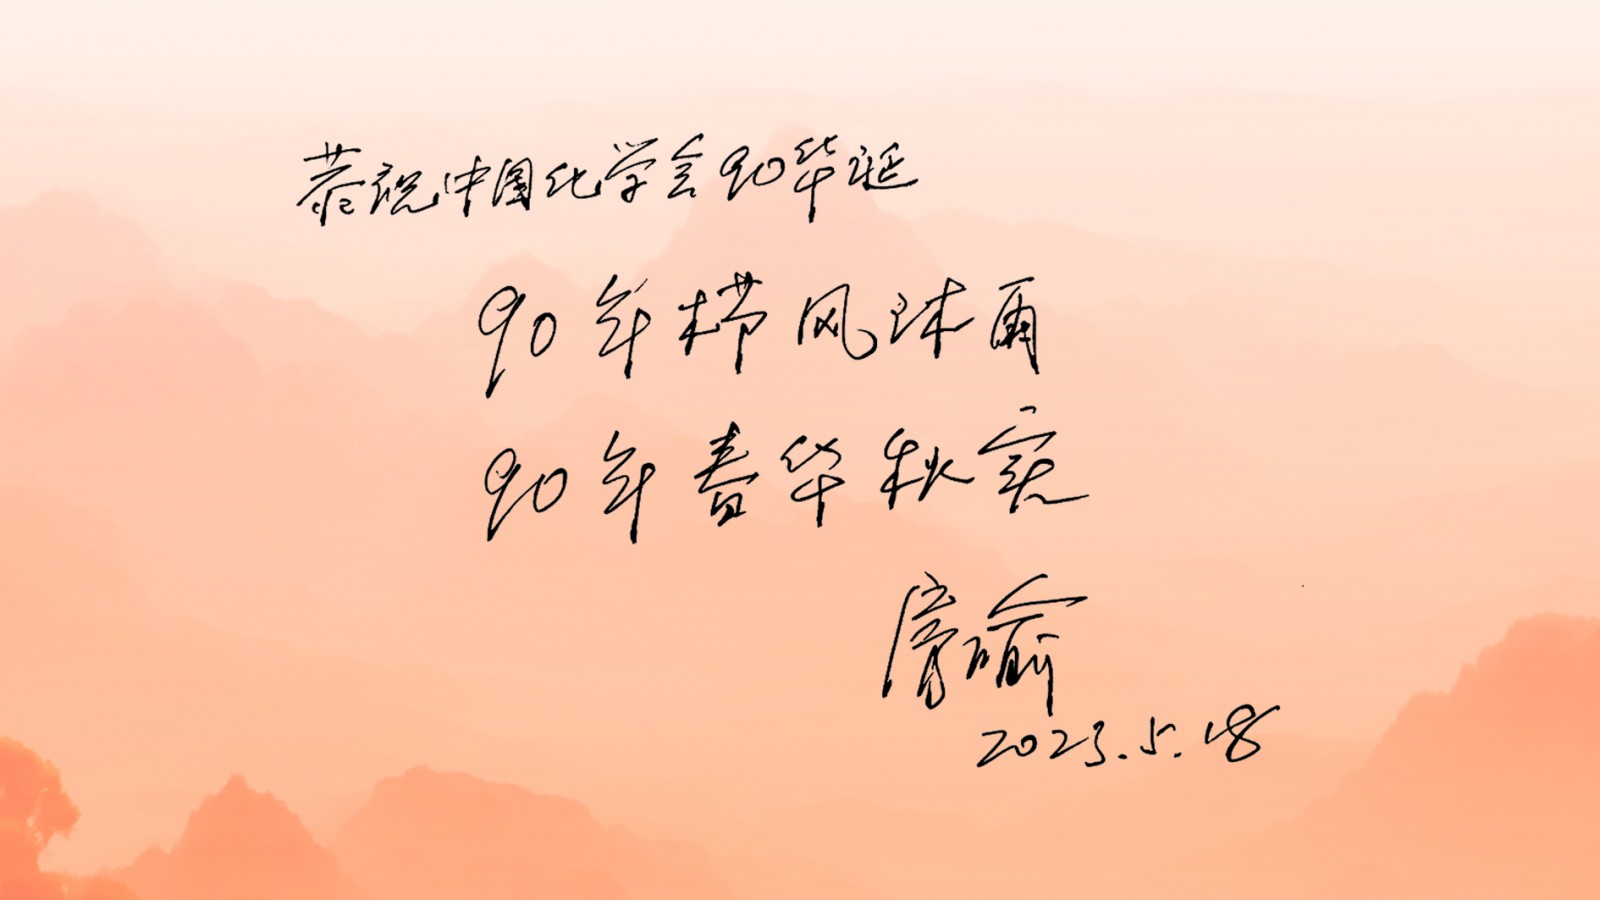 恭祝中国化学会90华诞
90年栉风沐雨
90年春华秋实
房喻
2023.5.18